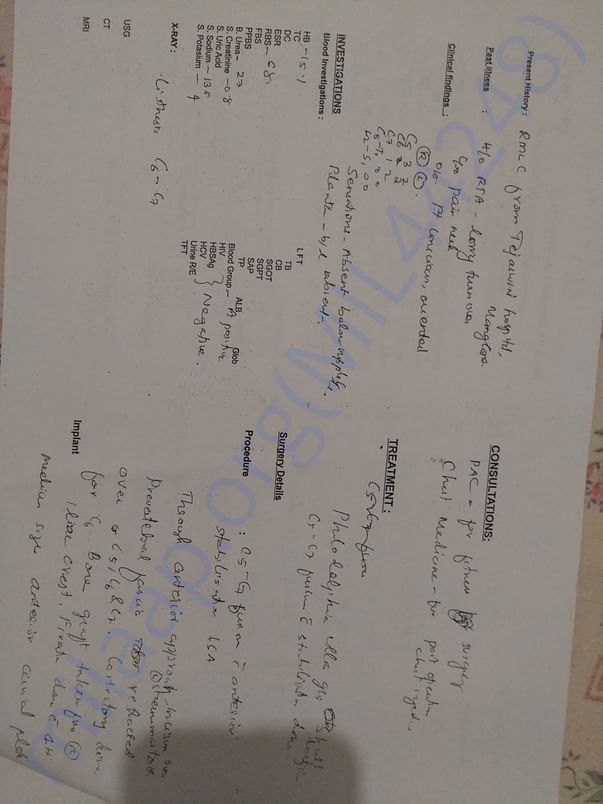 Present History: RMLC from Tejaswini hospital, Mangalore
Past illness : H/O RTA - lorry turnover
C/o pain neck
Clinical findings: O/E Pt conscious, oriented
(R) (L)
C5 3 2
C6 2 2
C7 1 2
C8-T1 0 0
L2-S1 0 0
Sensations - Absent below nipple.
Plantar - b/l absent.
INVESTIGATIONS
Blood Investigations:
HB - 15.1
TC
DC
ESR
RBS - 68
FBS
PPBS
B. Urea - 27
S. Creatinine - 0.8
S. Uric Acid
S. Sodium - 138
S. Potasium - 4
LFT
TB
CB
SGOT
SGPT
SAP
TP
ALB. Glob
Blood Group - A positive
HIV
HBSAg
HCV } Negative.
Urine R/E
TFT
X-RAY: Listhesis C6-C7
USG
CT
MRI
CONSULTATIONS:
PAC - for fitness surgery
Chest Medicine - for post operative chest
TREATMENT:
Philadelphia collar
C5-C7 fusion c stabilisation done
Surgery Details
Procedure : C5-C7 fusion c anterior stabilisation
Through anterior approach incision over (R) sternomastoid
Prevertebral fascia retracted
over C5, C6 & C7. Corpectomy done
for C6. Bone graft taken from (R)
iliac crest. Fixation done c
Implant
medium size anterior cervical plate
milaap.org(MIL44248)